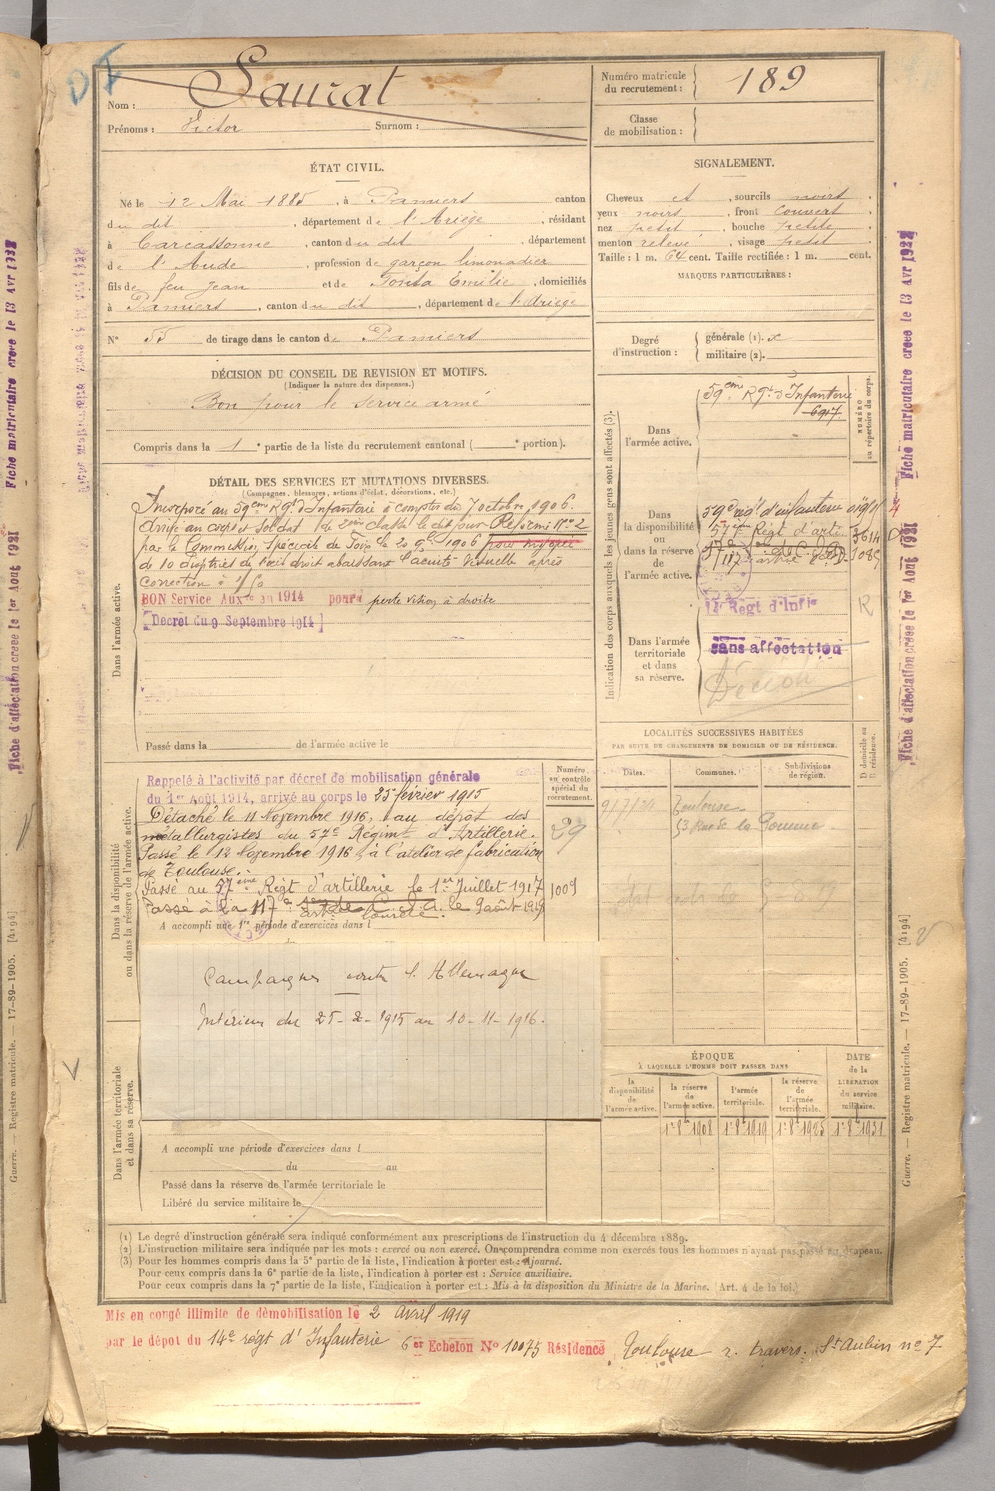 Nom : Saurat
Prénoms : Victor Surnom :
Numéro matricule du recrutement : 189
Classe de mobilisation :
ÉTAT CIVIL.
Né le 12 Mai 1885, à Pamiers canton
du dit, département de l'Ariège, résidant
à Carcassonne, canton du dit, département
de l'Aude, profession de garçon limonadier
fils de feu Jean et de Emilie, domiciliés
à Pamiers, canton du dit, département de l'Ariège
N° 55 de tirage dans le canton de Pamiers
SIGNALEMENT.
Cheveux et, sourcils noirs,
yeux noirs, front couvert,
nez petit, bouche petite,
menton relevé, visage petit
Taille : 1 m. 64 cent. Taille rectifiée : 1 m. cent.
MARQUES PARTICULIÈRES :
Degré d'instruction : générale (1).
militaire (2).
DÉCISION DU CONSEIL DE REVISION ET MOTIFS.
(Indiquer la nature des dispenses.)
Bon pour le service armé
Compris dans la 1e partie de la liste du recrutement cantonal ( e portion).
Indication des corps auxquels les jeunes gens sont affectés (3).
NUMÉRO au répertoire du corps.
Dans l'armée active.
59eme Rgt d'Infanterie
6917
Dans la disponibilité ou dans la réserve de l'armée active.
59e rég' d'infanterie
57e Regt d'art 3614
14e Regt d'Infie
Dans l'armée territoriale et dans sa réserve.
sans affectation
DÉTAIL DES SERVICES ET MUTATIONS DIVERSES.
(Campagnes, blessures, actions d'éclat, décorations, etc.)
Dans l'armée active.
Incorporé au 59eme Rgt d'Infanterie à compter du 7 octobre 1906.
Arrivé au corps et soldat de 2eme classe le dit jour. Réformé n° 2
par la Commission Spéciale de Foix le 20 9bre 1906 pour myopie
de 10 dioptries de l'œil droit abaissant l'acuité visuelle après
correction à
BON Service Aux en 1914 pour perte vision à droite
[Décret du 9 Septembre 1914]
Passé dans la de l'armée active le
Dans la disponibilité ou dans la réserve de l'armée active.
Numéro au contrôle spécial du recrutement.
Rappelé à l'activité par décret de mobilisation générale
du 1er Août 1914, arrivé au corps le 25 février 1915
Détaché le 11 Novembre 1916, au dépôt des
métallurgistes du 57e Régimt d'Artillerie.
Passé le 12 Novembre 1916, à l'atelier de fabrication
de Toulouse. 29
Passé au 57ème Régt d'artillerie le 1er Juillet 1917 1009
Passé à la 117e artie lourde. le 9 août 1919
A accompli une 1re période d'exercices dans l
Campagnes contre l'Allemagne
Intérieur du 25-2-1915 au 10-11-1916.
Dans l'armée territoriale et dans sa réserve.
A accompli une période d'exercices dans l
du au
Passé dans la réserve de l'armée territoriale le
Libéré du service militaire le
LOCALITÉS SUCCESSIVES HABITÉES
PAR SUITE DE CHANGEMENTS DE DOMICILE OU DE RÉSIDENCE.
Dates. Communes. Subdivisions de région. D domicile ou R résidence.
Toulouse
53 Rue de la Pomme
ÉPOQUE
À LAQUELLE L'HOMME DOIT PASSER DANS
la disponibilité de l'armée active.
la réserve de l'armée active.
l'armée territoriale.
la réserve de l'armée territoriale.
DATE de la LIBÉRATION du service militaire.
1er 8bre 1908 1er 8bre 1919 1er 8bre 1925 1er 8bre 1931
(1) Le degré d'instruction générale sera indiqué conformément aux prescriptions de l'instruction du 4 décembre 1889.
(2) L'instruction militaire sera indiquée par les mots : exercé ou non exercé. On comprendra comme non exercés tous les hommes n'ayant pas passé au drapeau.
(3) Pour les hommes compris dans la 5e partie de la liste, l'indication à porter est : Ajourné.
Pour ceux compris dans la 6e partie de la liste, l'indication à porter est : Service auxiliaire.
Pour ceux compris dans la 7e partie de la liste, l'indication à porter est : Mis à la disposition du Ministre de la Marine. (Art. 4 de la loi.)
Mis en congé illimité de démobilisation le 2 Avril 1919
par le dépot du 14e régt d'Infanterie 6er Echelon N° 10075 Résidence Toulouse r. travers. St Aubin n° 7
Fiche matriculaire créée le 13 Avr 1932
Fiche d'affectation créée le 1er Août 1931
Guerre. — Registre matricule. — 17-89-1905. [4194]
Fiche matriculaire créée le 13 Avr 1932
Fiche d'affectation créée le 1er Août 1931
Guerre. — Registre matricule. — 17-89-1905. [4194]